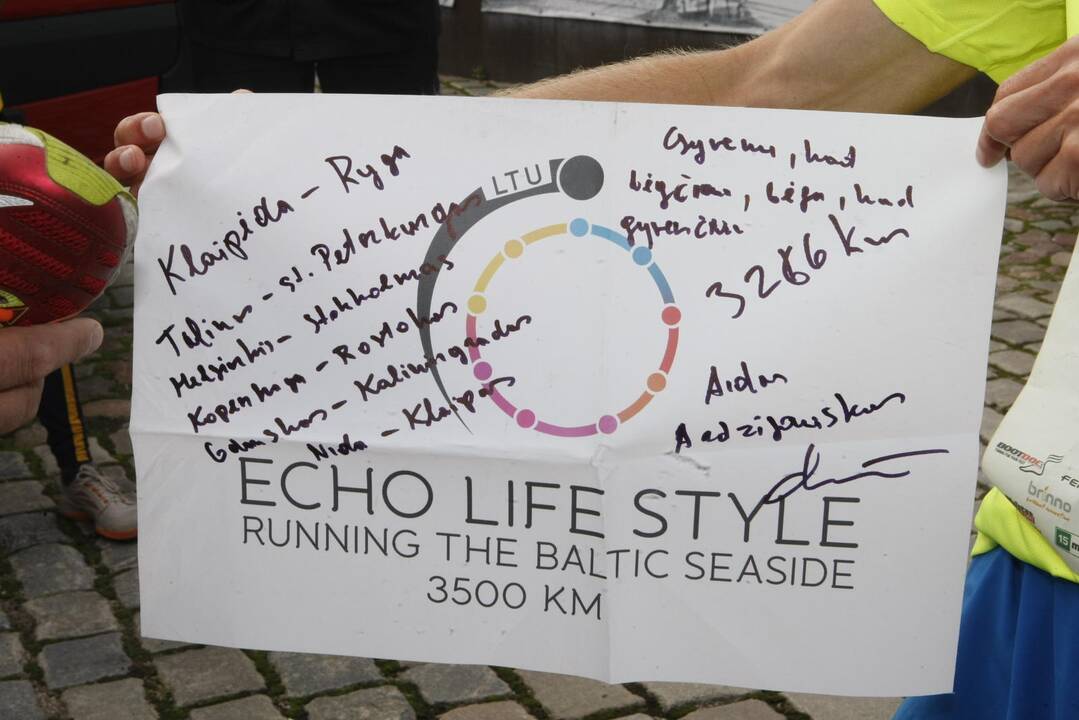 LTU
Klaipėda - Ryga
Talinas - St. Peterburgas
Helsinkis - Stokholmas
Kopenhaga - Rostokas
Gdanskas - Kaliningradas
Nida - Klaipėda
Gyvenu, kad
bėgčiau, bėgu, kad
gyvenčiau
3266 km
Aidas
Ardzijauskas
ECHO LIFE STYLE
RUNNING THE BALTIC SEASIDE
3500 KM
brinno
15